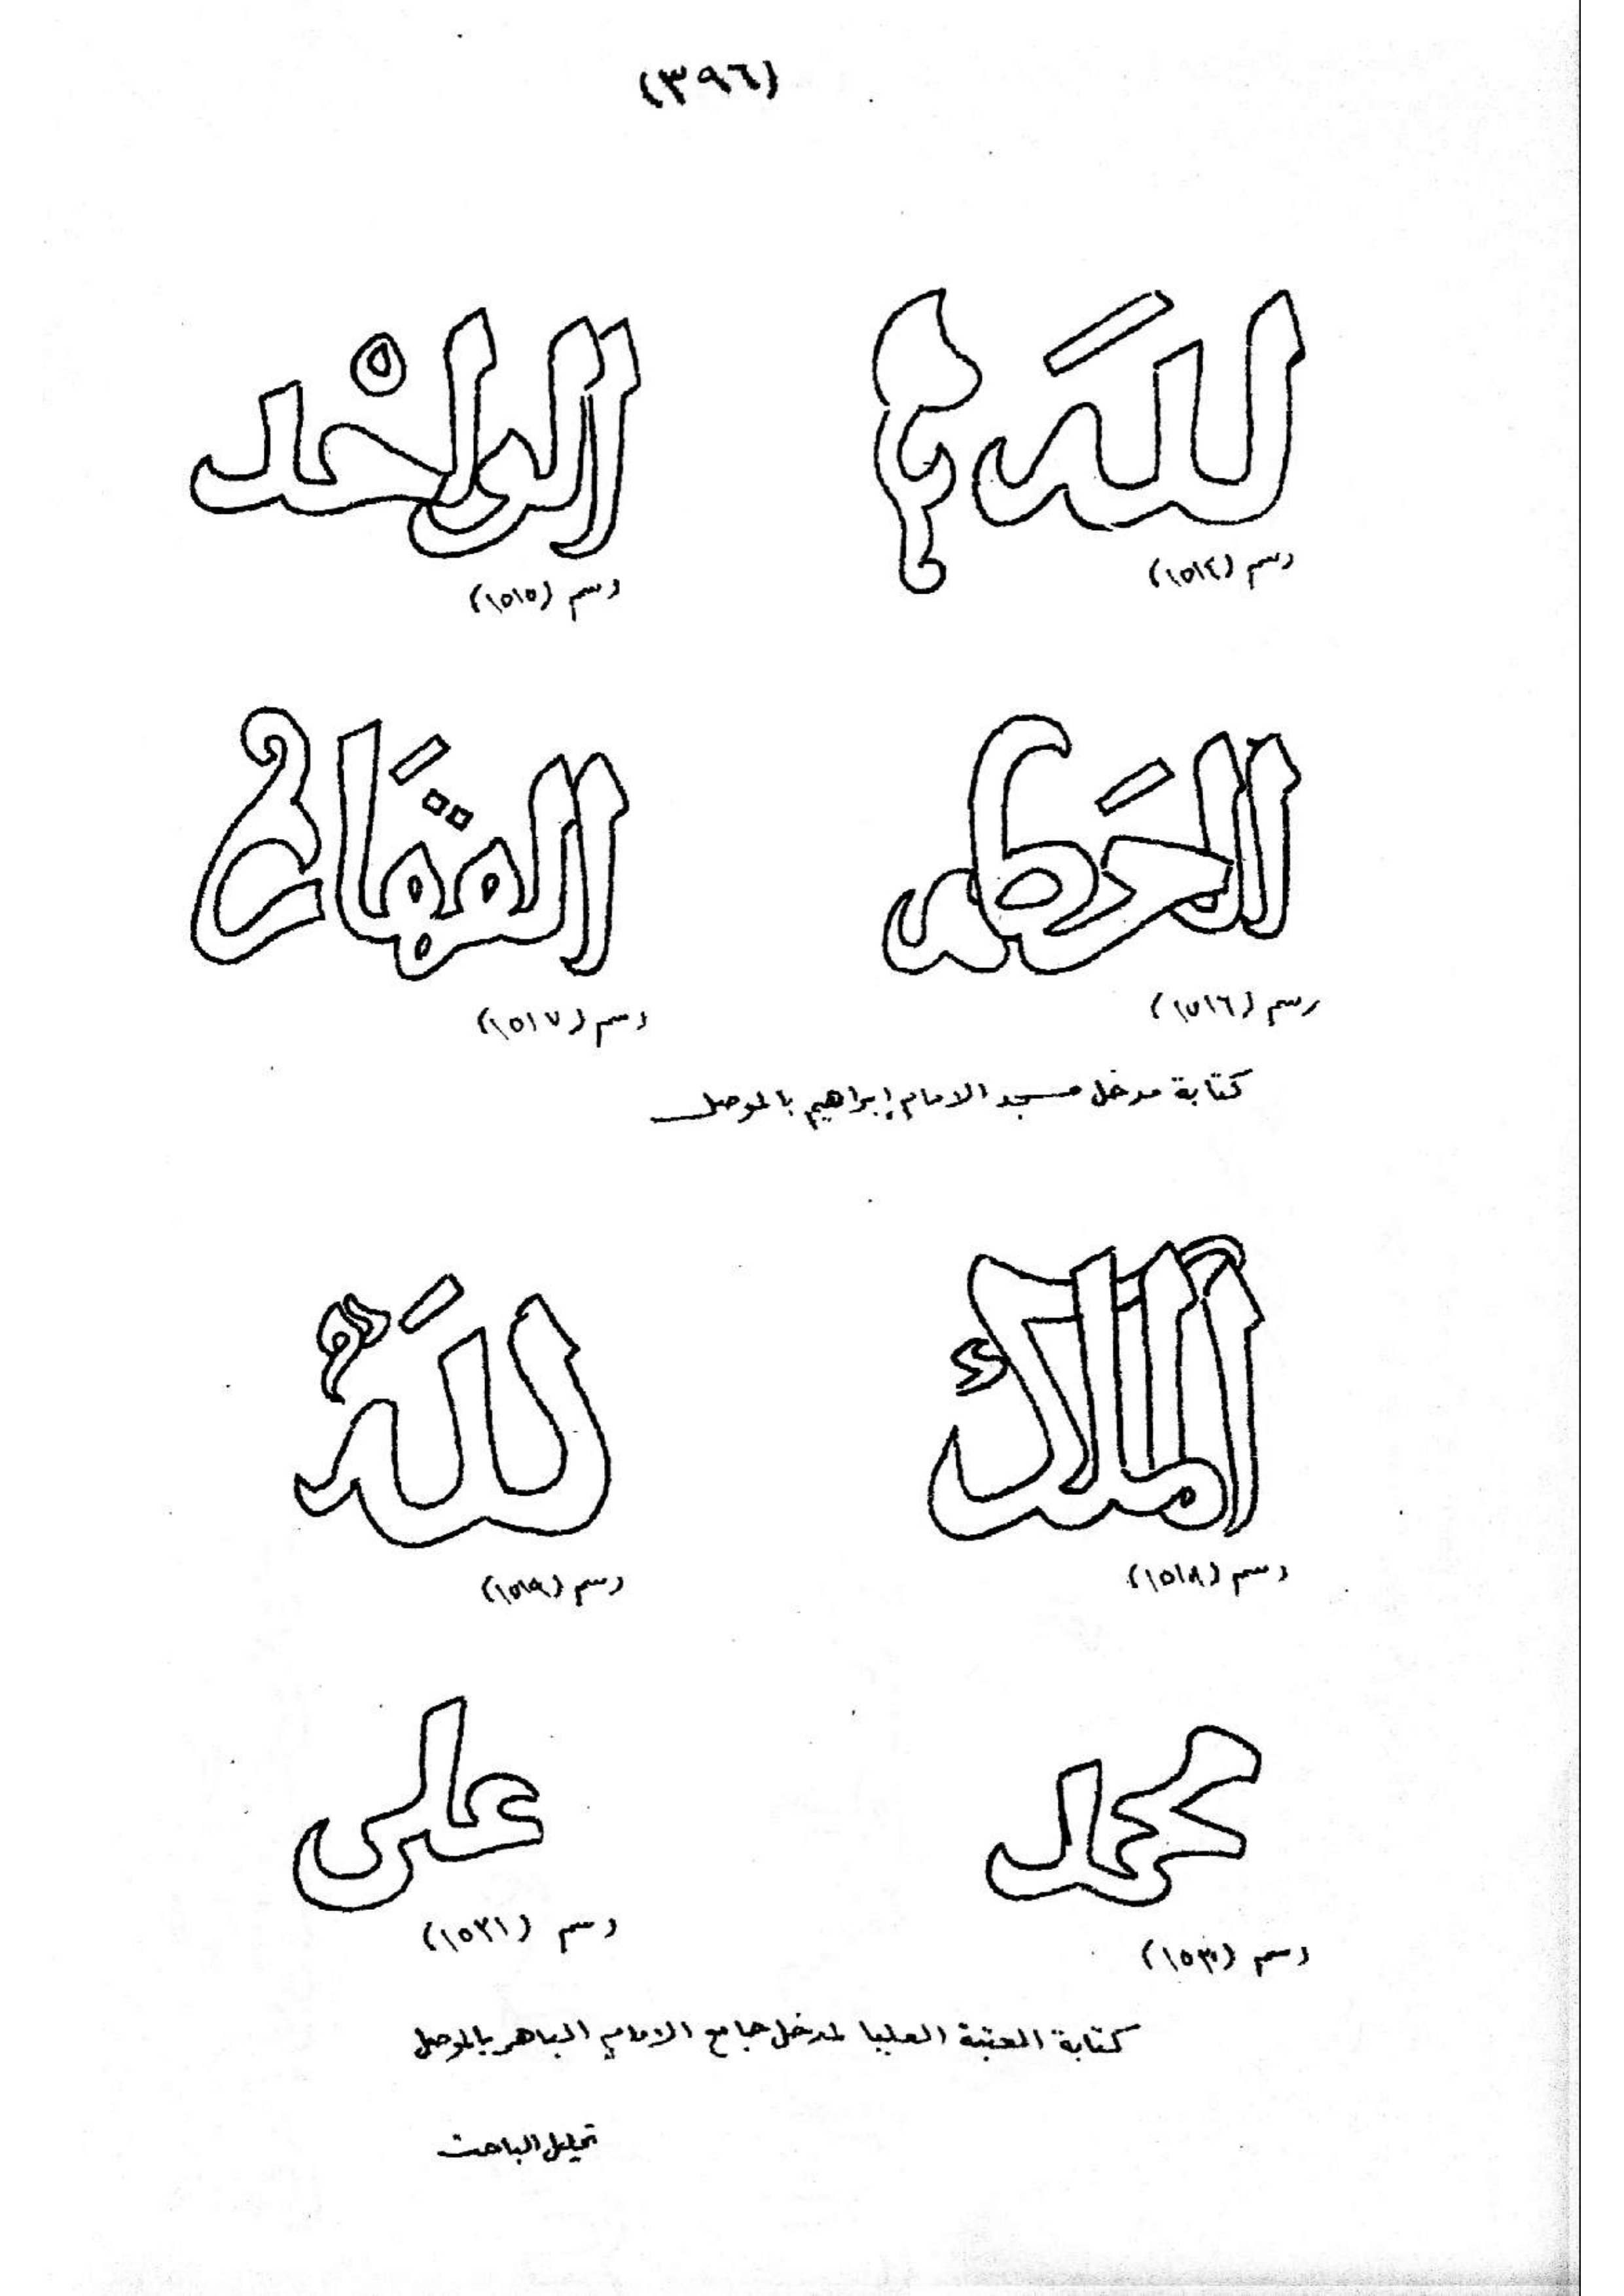 (٣٩٦)
لله
الواحد
رسم (١٥١٤)
رسم (١٥١٥)
رسم (١٥١٦)
رسم (١٥١٧)
كتابة مدخل مسجد الامام إبراهيم بالموصل
الملك
لله
رسم (١٥١٨)
رسم (١٥١٩)
محمد
على
رسم (١٥٢٠)
رسم (١٥٢١)
كتابة العتبة العليا لمدخل جامع الامام الباهر بالموصل
تحليل الباحث